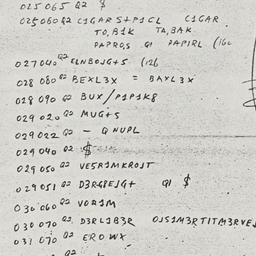 025065 Q2 $
025060 Q2 C1GARS+P1CL C1GAR
TO,B1K TA,BAK
PAPROS Q1 PAPIRL (16c
027040 Q2 ELNBOJG+S (126
028 080 Q2 BEXL3X = BAXL3X
028 090 Q2 BUX/P1P1K8
029 020 Q2 MUG+S
029022 Q2 - QNUPL
029 040 02 $
029 050 Q2 VE5R1MKROJT
029051 Q2 D3RGBEJG+ Q1 $
030 060 Q2 VOR1M
030 070 Q2 D3RL1B3R OJS1M3RTITM3RVEJ
031 070 Q2 EROWX
Q2